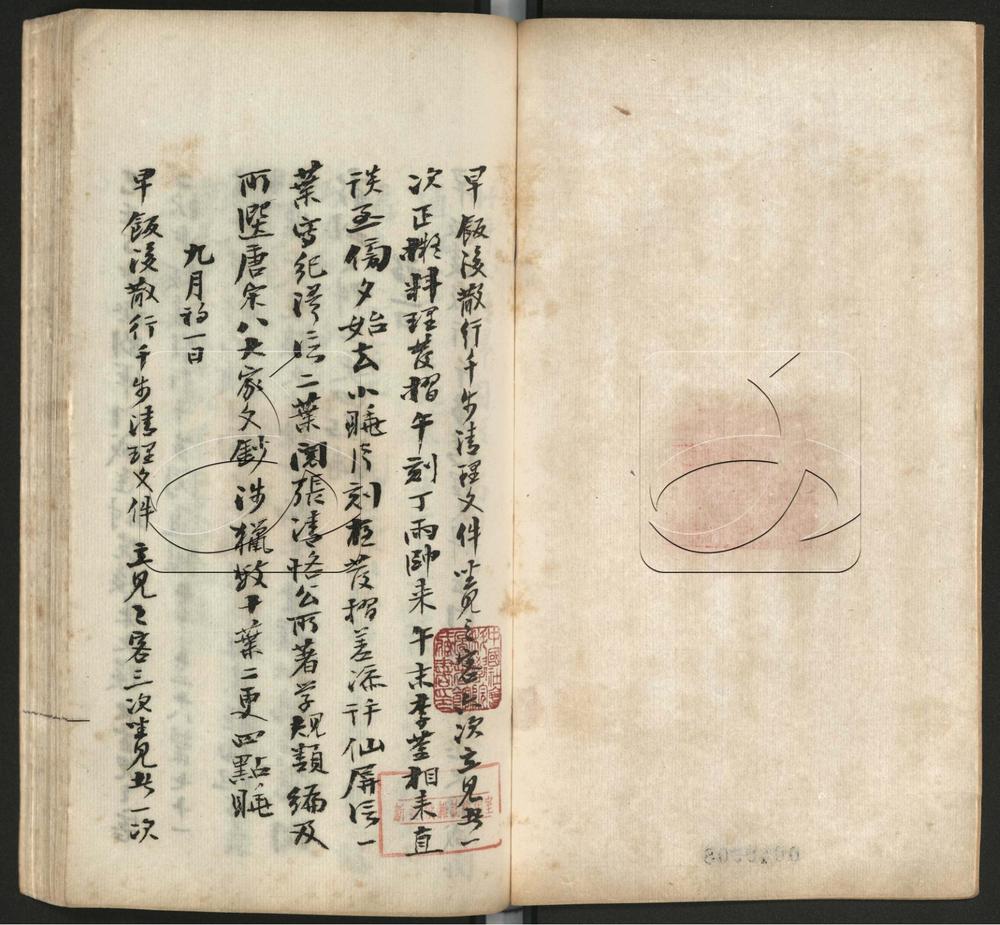 早飯後散行千步清理文件坐見之客六次立見者一
次正擬料理發摺午刻丁雨帥來午末李荃相來直
談至傍夕始去小睡片刻夜發摺差添許仙屏信一
葉寫紀澤信二葉閱張清恪公所著學規類編及
所選唐宋八大家文鈔涉獵數十葉二更四點睡
九月初一日
早飯後散行千步清理文件立見之客三次坐見者一次